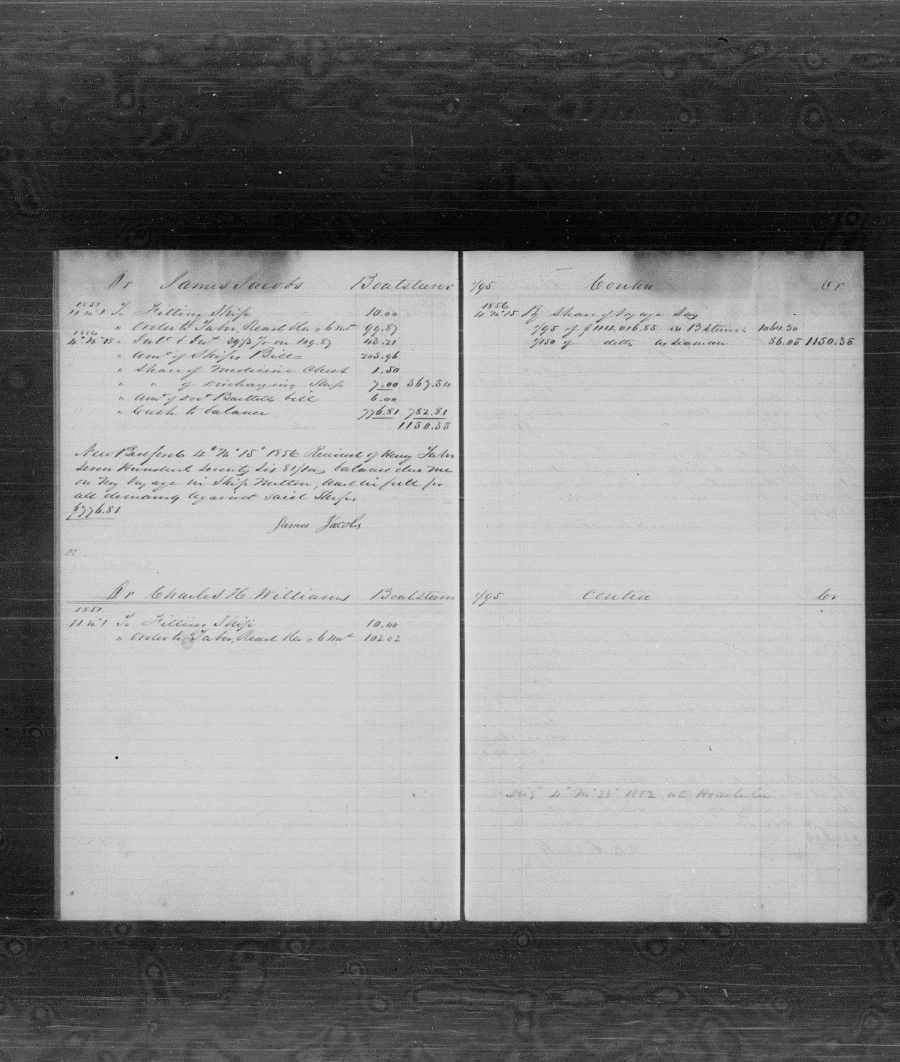 Dr James Jacobs Boatsteerer
1851
11 mo 1 To Fitting Ship 10.00
" Order to Taber, Read Her & 6 mos 99.87
1856
4 mo 15 " Int & Ins 39 1/3 % on 109.87 43.21
" Amt of Ships Bill 205.96
" Share of Medicine Chest 1.50
" " of Discharging Ship 7.00 367.54
" Amt of Doct Bartletts bill 6.00
" Cash to balance 776.81 782.81
1150.35
New Bedford 4 mo 15 1856 Received of Henry Taber
Seven Hundred Seventy Six 81/100 balance due me
on my voyage in Ship Milton, and in full for
all demands against said Ship.
$776.81
James Jacobs
Dr Charles H Williams Boatsteerer
1851
11 mo 1 To Fitting Ship 10.00
" Order to Taber, Read Her & 6 mos 102.02
1/95 Contra Cr
1856
4 mo 15 By Share of Voyage Say
1/95 of $ in B Steerer 1064.30
1/150 of ditto as Seaman 86.05 1150.35
1/95 Contra Cr
4 mo 23 1852 at Honolulu